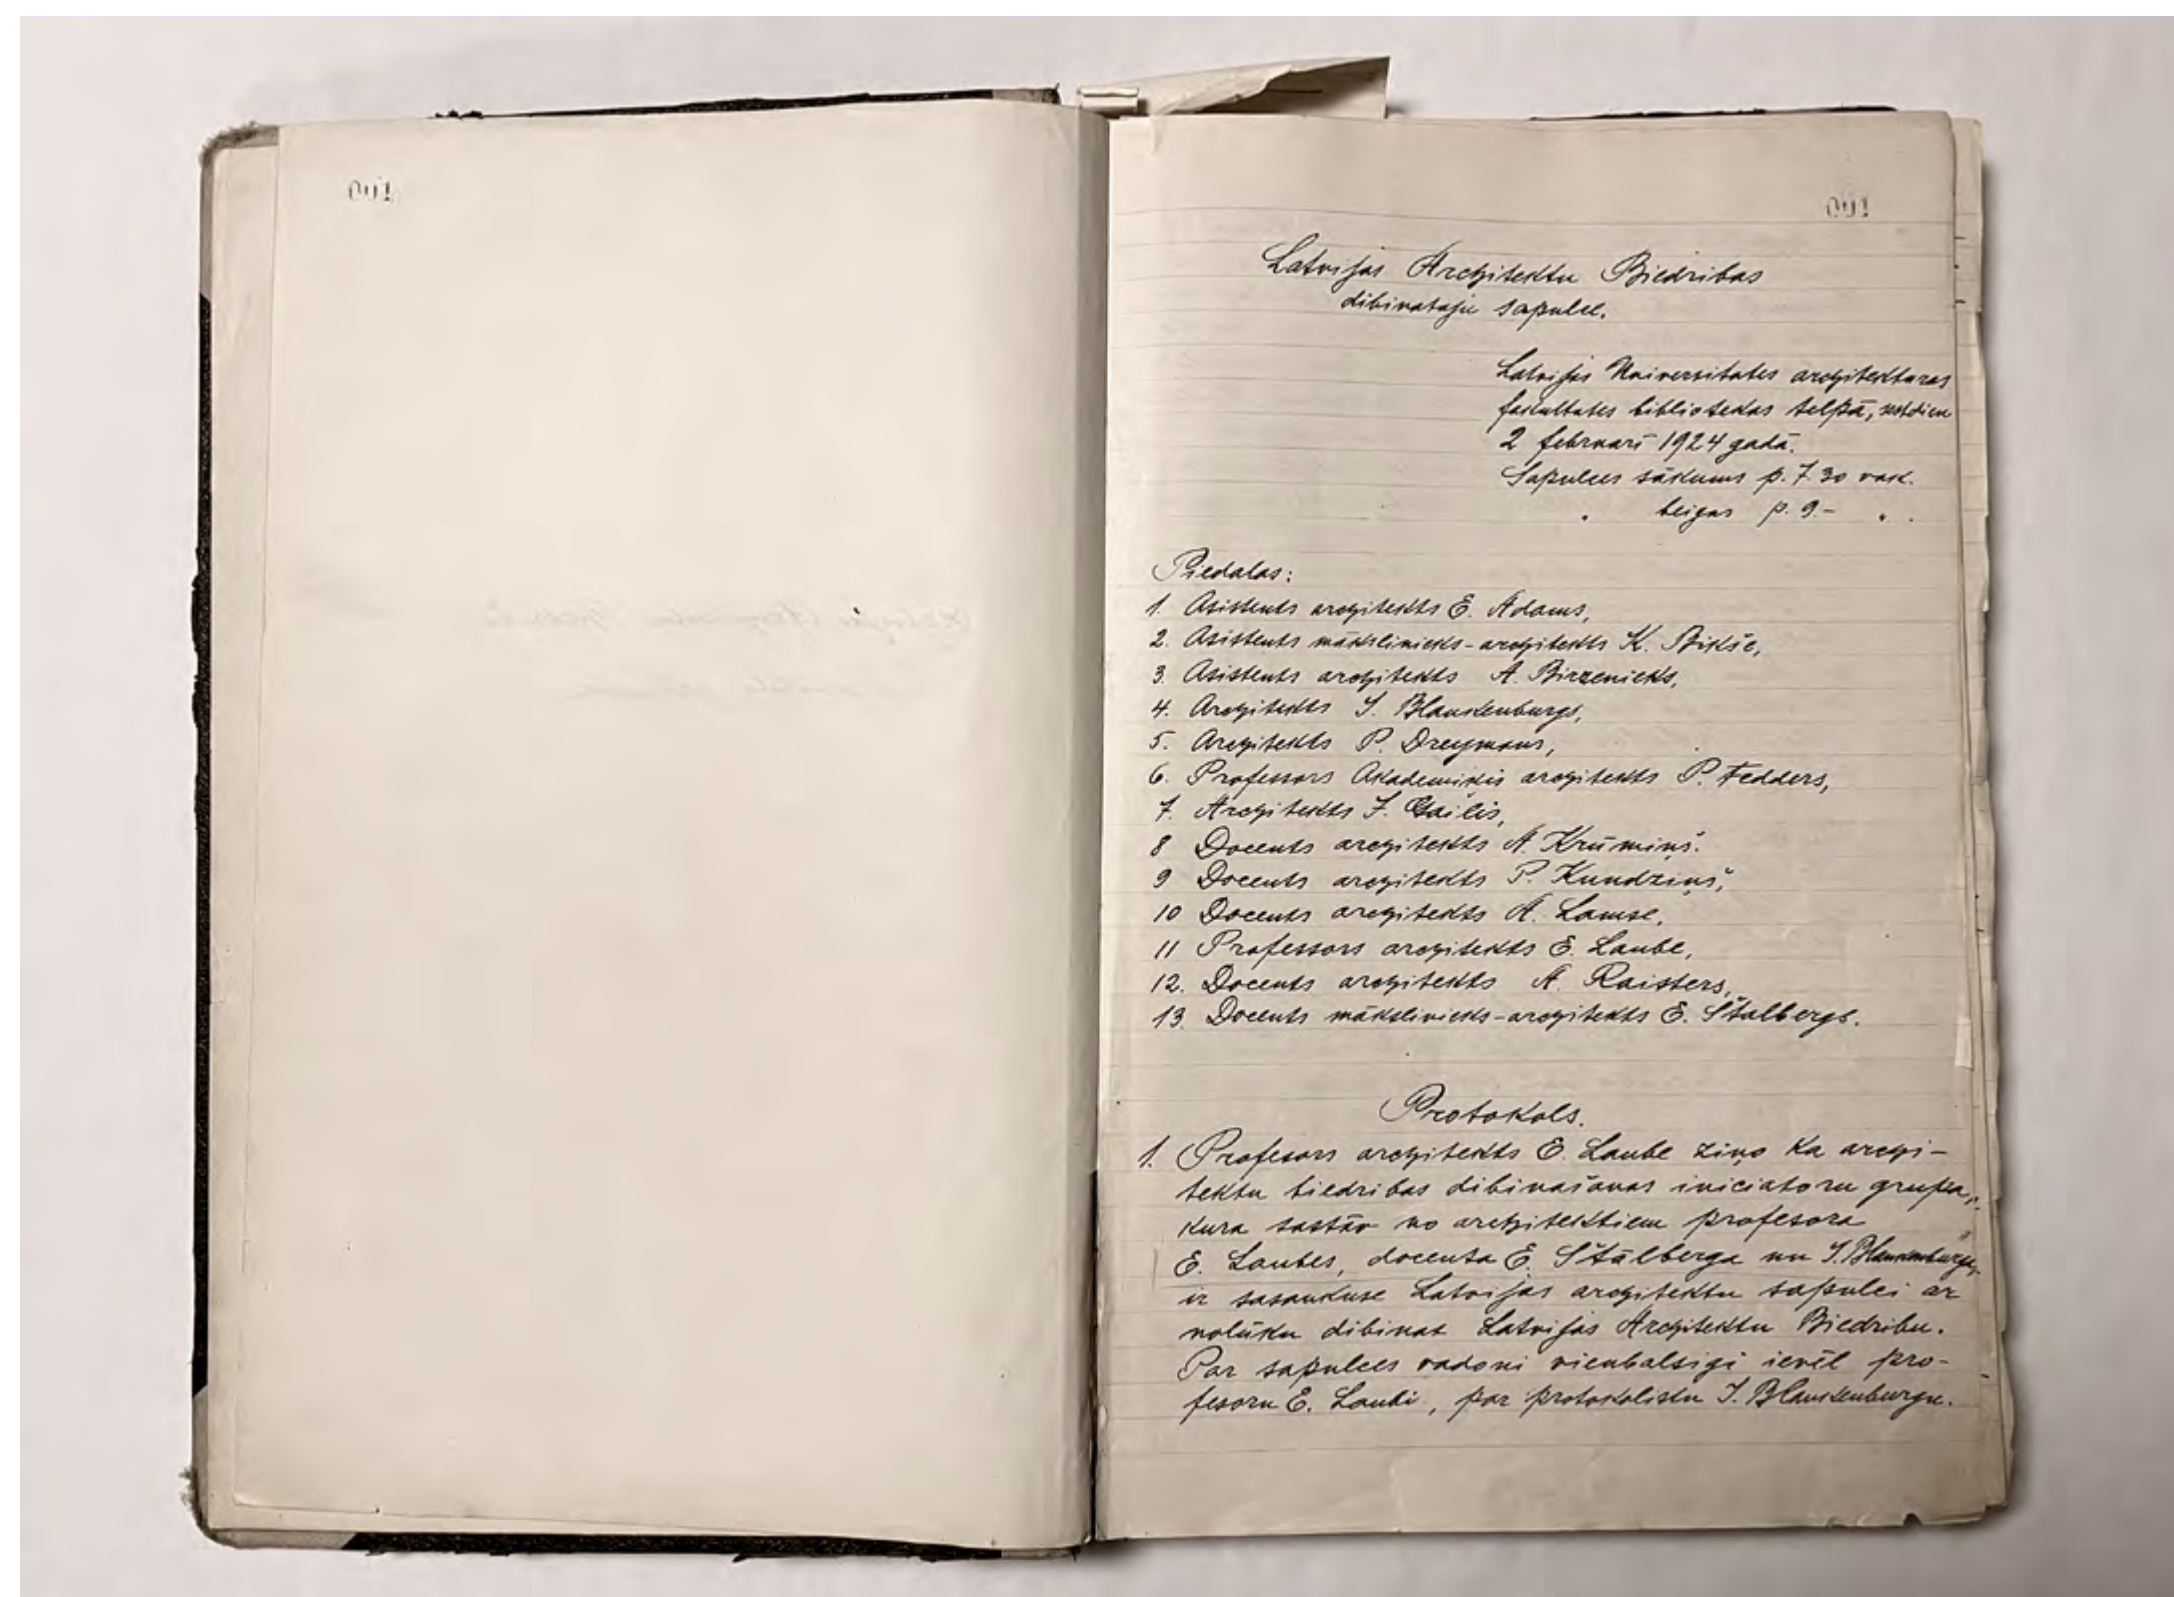 001
001
Latvijas Architektu Biedribas
dibinataju sapulce.
Latvijas Universitates architekturas
fakultates bibliotekas telpā, sestdien
2 februarī 1924 gadā.
Sapulces sākums p. 7.30 vak.
" beigas p. 9.– " .
Piedalas:
1. Asistents architekts E. Adams,
2. Asistents mākslinieks-architekts K. Bikše,
3. Asistents architekts A. Birzenieks,
4. Architekts I. Blankenburgs,
5. Architekts P. Dreymans,
6. Professors Akademiķis architekts P. Fedders,
7. Architekts J. Gailis,
8 Docents architekts A. Krūmiņš.
9 Docents architekts P. Kundziņš,
10 Docents architekts A. Lamse,
11 Professors architekts E. Laube,
12. Docents architekts A. Raisters,
13. Docents mākslinieks-architekts E. Štalbergs.
Protokols.
1. Profesors architekts E. Laube ziņo ka archi-
tektu biedribas dibinašanas iniciatoru grupa,
kura sastāv no architektiem profesora
E. Laubes, docenta E. Štālberga un I. Blankenburga,
ir sasaukuse Latvijas architektu sapulci ar
nolūku dibinat Latvijas Architektu Biedribu.
Par sapulces vadoni vienbalsigi ievēl pro-
fesoru E. Laubi, par protokolistu I. Blankenburgu.